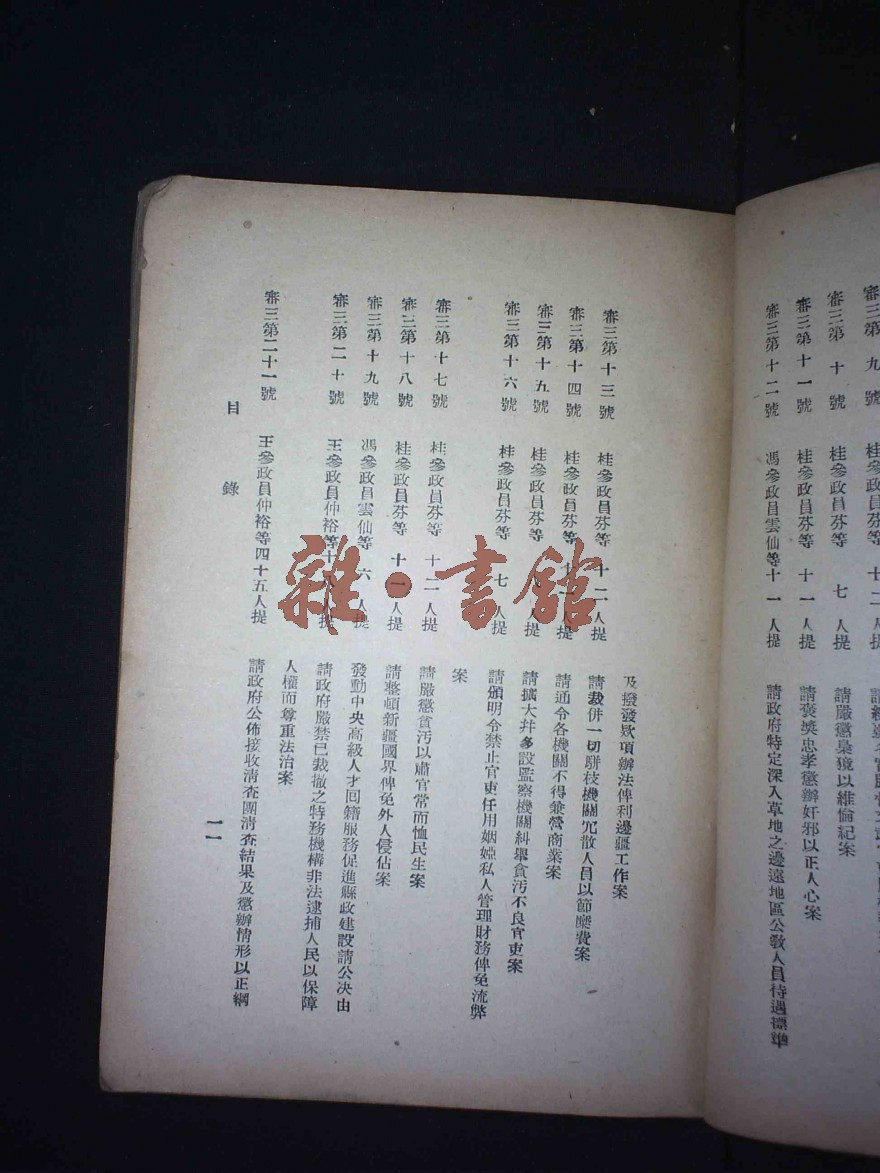 審三第九號
桂參政員芬等十二人提
審三第十號
七人提
請嚴懲梟獍以維倫紀案
審三第十一號 桂參政員芬等十一人提 請褒獎忠孝懲辦奸邪以正人心案
審三第十二號 馮參政員雲仙等十一人提 請政府特定深入草地之邊遠地區公教人員待遇標準
及撥發欵項辦法俾利邊疆工作案
審三第十三號 桂參政員芬等十二人提 請裁併一切駢枝機關冗散人員以節糜費案
審三第十四號 桂參政員芬等十人提 請通令各機關不得兼營商業案
審三第十五號 桂參政員芬等人提 請擴大幷多設監察機關糾舉貪污不良官吏案
審三第十六號 桂參政員芬等七人提 請頒明令禁止官吏任用姻婭私人管理財務俾免流弊
案
審三第十七號 桂參政員芬等十二人提 請嚴懲貪污以肅官常而恤民生案
審三第十八號 桂參政員芬等十一人提 請整頓新疆國界俾免外人侵佔案
審三第十九號 馮參政員雲仙等六人提 發動中央高級人才囘籍服務促進縣政建設請公决由
審三第二十號 王參政員仲裕等十人提 請政府嚴禁已裁撤之特務機構非法逮捕人民以保障
人權而尊重法治案
審三第二十一號 王參政員仲裕等四十五人提 請政府公佈接收淸查團淸查結果及懲辦情形以正綱
目錄
一一
雜·書館